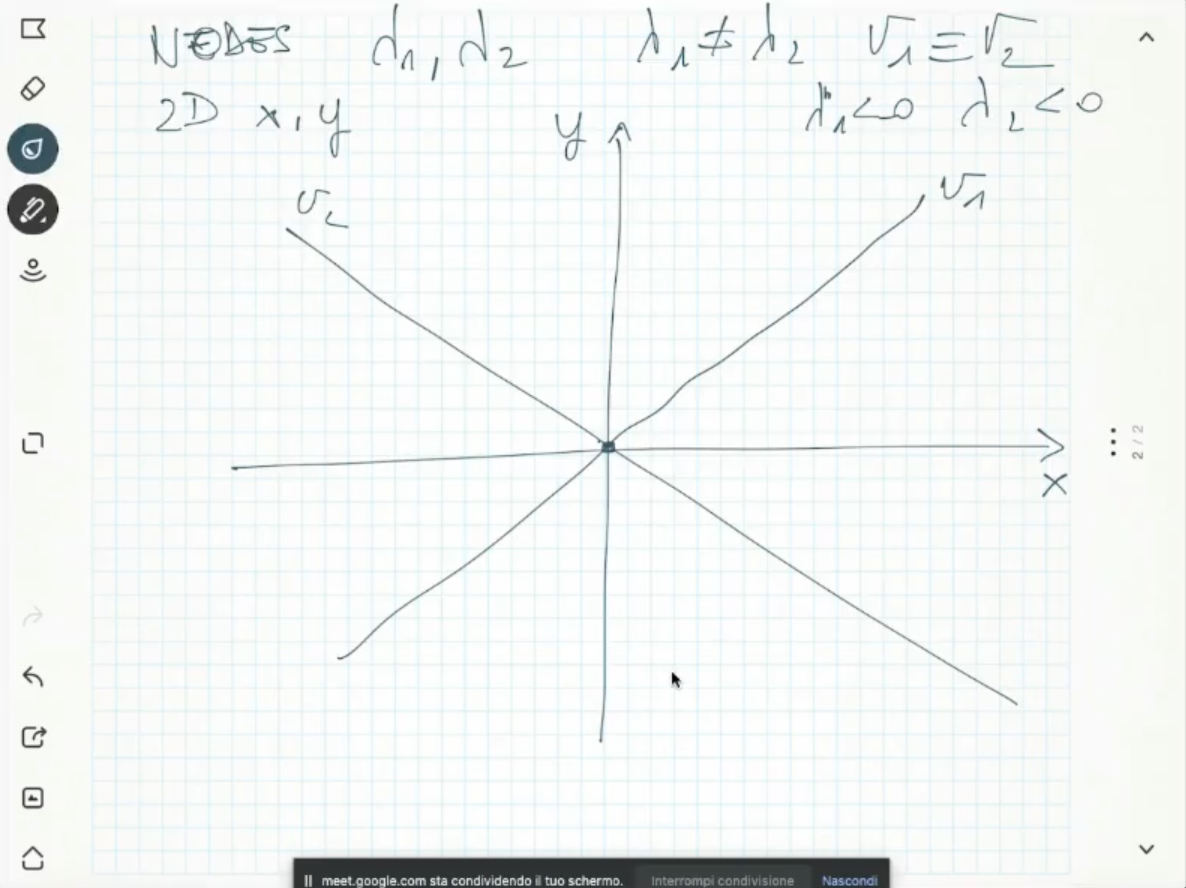 NODES λ₁, λ₂ λ₁ ≠ λ₂ v₁ ≡ v₂
2D x, y λ₁ < 0 λ₂ < 0
y
v₂
v₁
x
2 / 2
meet.google.com sta condividendo il tuo schermo. Interrompi condivisione Nascondi